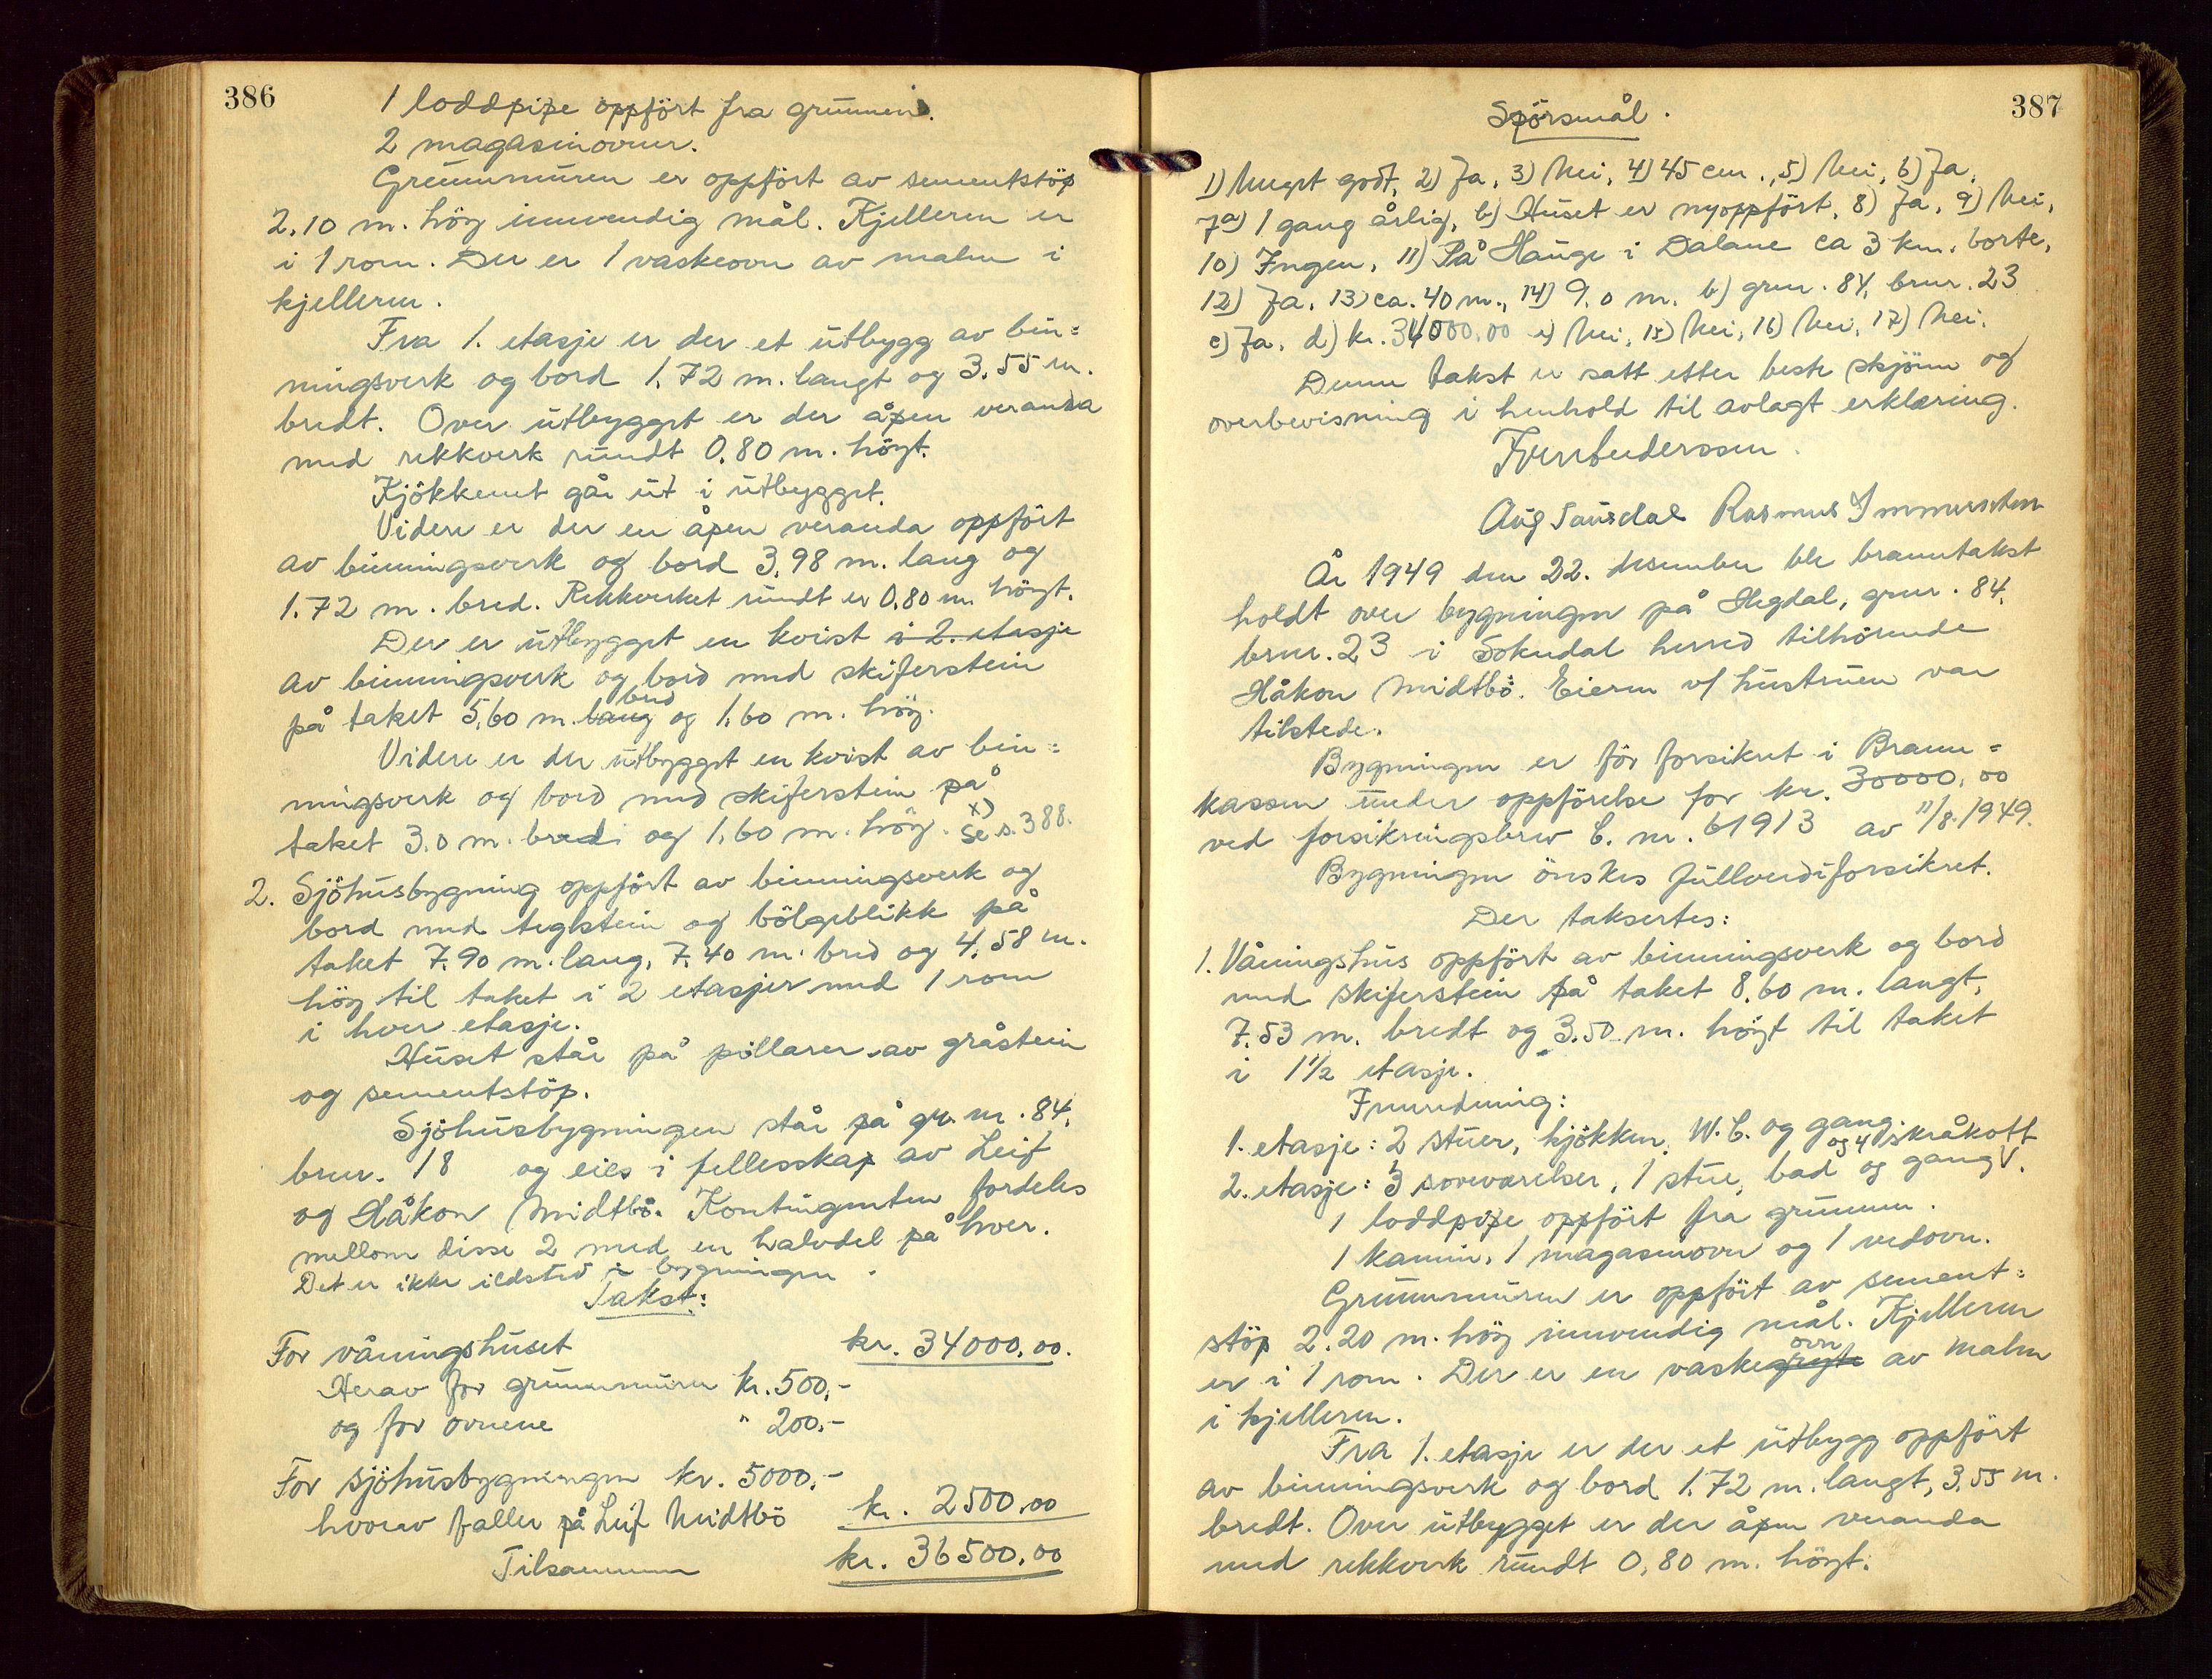 386
1 loddpipe oppfört fra grunnen.
2 magasinovner.
Grunnmuren er oppfört av sementstöp
2.10 m. hög innvendig mål. Kjelleren er
i 1 rom. Der er 1 vaskeovn av malm i
kjelleren.
Fra 1. etasje er der et utbygg av bin=
ningsverk og bord 1.72 m. langt og 3.55 m.
bredt. Over utbygget er der åpen veranda
med rekkverk rundt 0.80 m. högt.
Kjökkenet går ut i utbygget.
Videre er der en åpen veranda oppfört
av binningsverk og bord 3.98 m. lang og
1.72 m. bred. Rekkverket rundt er 0.80 m. högt.
Der er utbygget en kvist i 2. etasje
av binningsverk og bord med skiferstein
bred
på taket 5.60 m. lang og 1.60 m. hög.
Videre er der utbygget en kvist av bin=
ningsverk og bord med skiferstein på
taket 3.0 m. bred og 1.60 m. hög. x) Se s. 388.
2. Sjöhusbygning oppfört av binningsverk og
bord med teglstein og bölgeblikk på
taket 7.90 m. lang, 7.40 m. bred og 4.58 m.
hög til taket i 2 etasjer med 1 rom
i hver etasje.
Huset står på pillarer av gråstein
og sementstöp.
Sjöhusbygningen står på gr. nr. 84,
brnr. 18 og eies i fellesskap av Leif
og Håkon Midtbö. Kontingenten fordeles
mellom disse 2 med en halvdel på hver.
Det er ikke ildsted i bygningen.
Takst:
For våningshuset kr. 34000,00.
Herav for grunnmuren kr. 500,-
og for ovnene " 200,-
For sjöhusbygningen kr. 5000,-
hvorav faller på Leif Midtbö kr. 2500,00
Tilsammen kr. 36500,00
387
Spörsmål.
1) Meget godt, 2) Ja, 3) Nei, 4) 45 cm., 5) Nei, 6) Ja,
7a) 1 gang årlig, b) Huset er nyoppfört, 8) Ja, 9) Nei,
10) Ingen, 11) På Hauge i Dalane ca 3 km. borte,
12) Ja, 13) ca. 40 m., 14) 9.0 m. b) grnr. 84, brnr. 23
c) Ja, d) kr. 34000,00 e) Nei, 15) Nei, 16) Nei, 17) Nei.
Denne takst er satt etter beste skjönn og
overbevisning i henhold til avlagt erklæring.
Aug Sausdal Rasmus
År 1949 den 22. desember ble branntakst
holdt over bygningen på Hegdal, grnr. 84,
brnr. 23 i Sokndal herred tilhörende
Håkon Midtbö. Eieren v/ hustruen var
tilstede.
Bygningen er för forsikret i Brann=
kassen under oppförelse for kr. 30000,00
ved forsikringsbrev C. nr. 61913 av 11/8. 1949.
Bygningen önskes fullverdiforsikret.
Der taksertes:
1. Våningshus oppfört av binningsverk og bord
med skiferstein på taket 8.60 m. langt,
7.53 m. bredt og 3.50 m. högt til taket
i 1½ etasje.
Innredning:
1. etasje: 2 stuer, kjökken, W.C. og gang.
og 4 skråkott
2. etasje: 3 soveværelser, 1 stue, bad og gang V.
1 loddpipe oppfört fra grunnen.
1 kamin, 1 magasinovn og 1 vedovn.
Grunnmuren er oppfört av sement=
stöp 2.20 m. hög innvendig mål. Kjelleren
ovn
er i 1 rom. Der er en vaskegryte av malm
i kjelleren.
Fra 1. etasje er der et utbygg oppfört
av binningsverk og bord 1.72 m. langt, 3.55 m.
bredt. Over utbygget er der åpen veranda
med rekkverk rundt 0.80 m. högt.